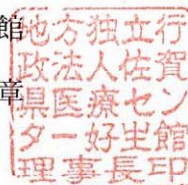 館
章
地方独立行
政法人佐賀
県医療セン
ター好生館
理事長印